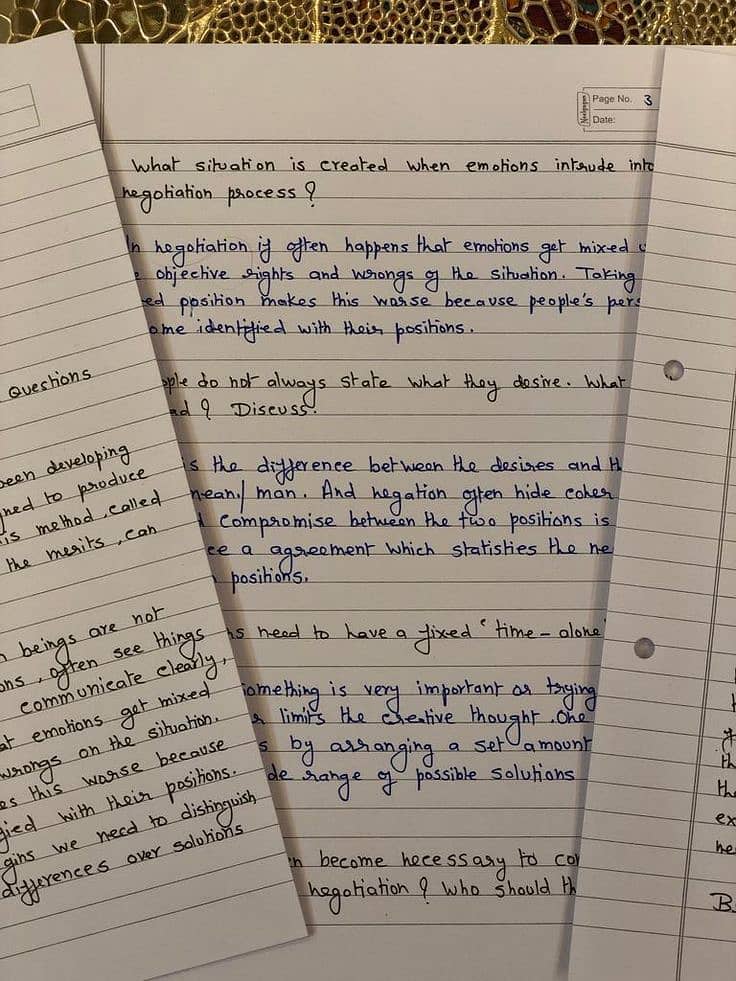 Page No. 3
Date:
What situation is created when emotions intrude into
negotiation process ?
In negotiation if often happens that emotions get mixed
objective rights and wrongs of the situation. Taking
position makes this worse because people's pers
ome identified with their positions.
ple do not always state what they desire. What
ad ? Discuss.
is the difference between the desires and
mean/ man. And negation often hide
compromise between the two positions is
ce a agreement which statisties the ne
positions.
ns need to have a fixed "time - alone
something is very important as trying
limits the crestive thought. One
s by arranging a set amount
de range of possible solutions
n become necessary to co
negotiation ? Who should th
Questions
been developing
ned to produce
is method, called
the merits, can
n beings are not
ons, often see things
communicate clearly,
at emotions get mixed
wrongs on the situation.
es this worse because
fied with their positions.
gins we need to distinguish
differences over solutions
th
the
ex
he
B